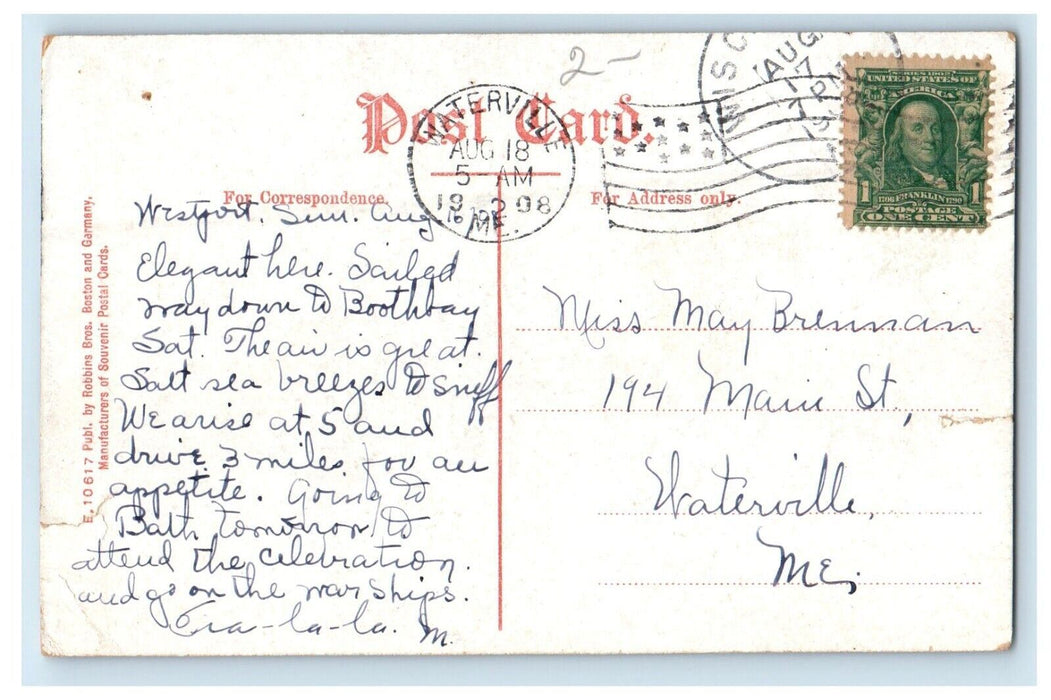 2-
Post Card.
WATERVILLE
AUG 18
5 AM
1908
ME.
WISC
AUG
17
7 PM
SERIES 1902
UNITED STATES OF
AMERICA
1
1706 FRANKLIN 1790
POSTAGE
ONE CENT
For Correspondence.
For Address only.
E. 10617 Publ. by Robbins Bros. Boston and Germany,
Manufacturers of Souvenir Postal Cards.
Westport, Sun. Aug
16, 08
Elegant here. Sailed
way down to Boothbay
Sat. The air is great.
Salt sea breezes to sniff
We arise at 5 and
drive 3 miles for an
appetite. Going to
Bath tomorrow to
attend the celebration.
and go on the war ships.
Tra-la-la. M.
Miss May Brennan
194 Main St,
Waterville,
Me,